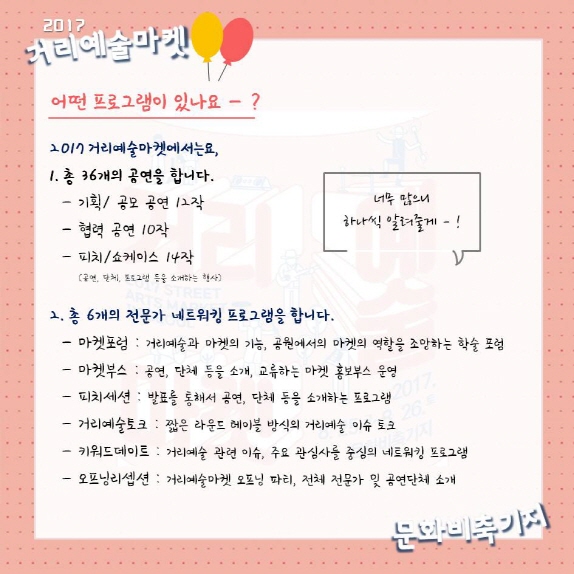 2017
거리예술마켓
어떤 프로그램이 있나요 - ?
2017 거리예술마켓에서는요,
1. 총 36개의 공연을 합니다.
- 기획/ 공모 공연 12작
- 협력 공연 10작
- 피치/쇼케이스 14작
(공연, 단체, 프로그램 등을 소개하는 행사)
너무 많으니
하나씩 알려줄게 - !
2. 총 6개의 전문가 네트워킹 프로그램을 합니다.
- 마켓포럼 : 거리예술과 마켓의 기능, 공원에서의 마켓의 역할을 조망하는 학술 포럼
- 마켓부스 : 공연, 단체 등을 소개, 교류하는 마켓 홍보부스 운영
- 피치세션 : 발표를 통해서 공연, 단체 등을 소개하는 프로그램
- 거리예술토크 : 짧은 라운드 테이블 방식의 거리예술 이슈 토크
- 키워드데이트 : 거리예술 관련 이슈, 주요 관심사를 중심의 네트워킹 프로그램
- 오프닝리셉션 : 거리예술마켓 오프닝 파티, 전체 전문가 및 공연단체 소개
문화비축기지